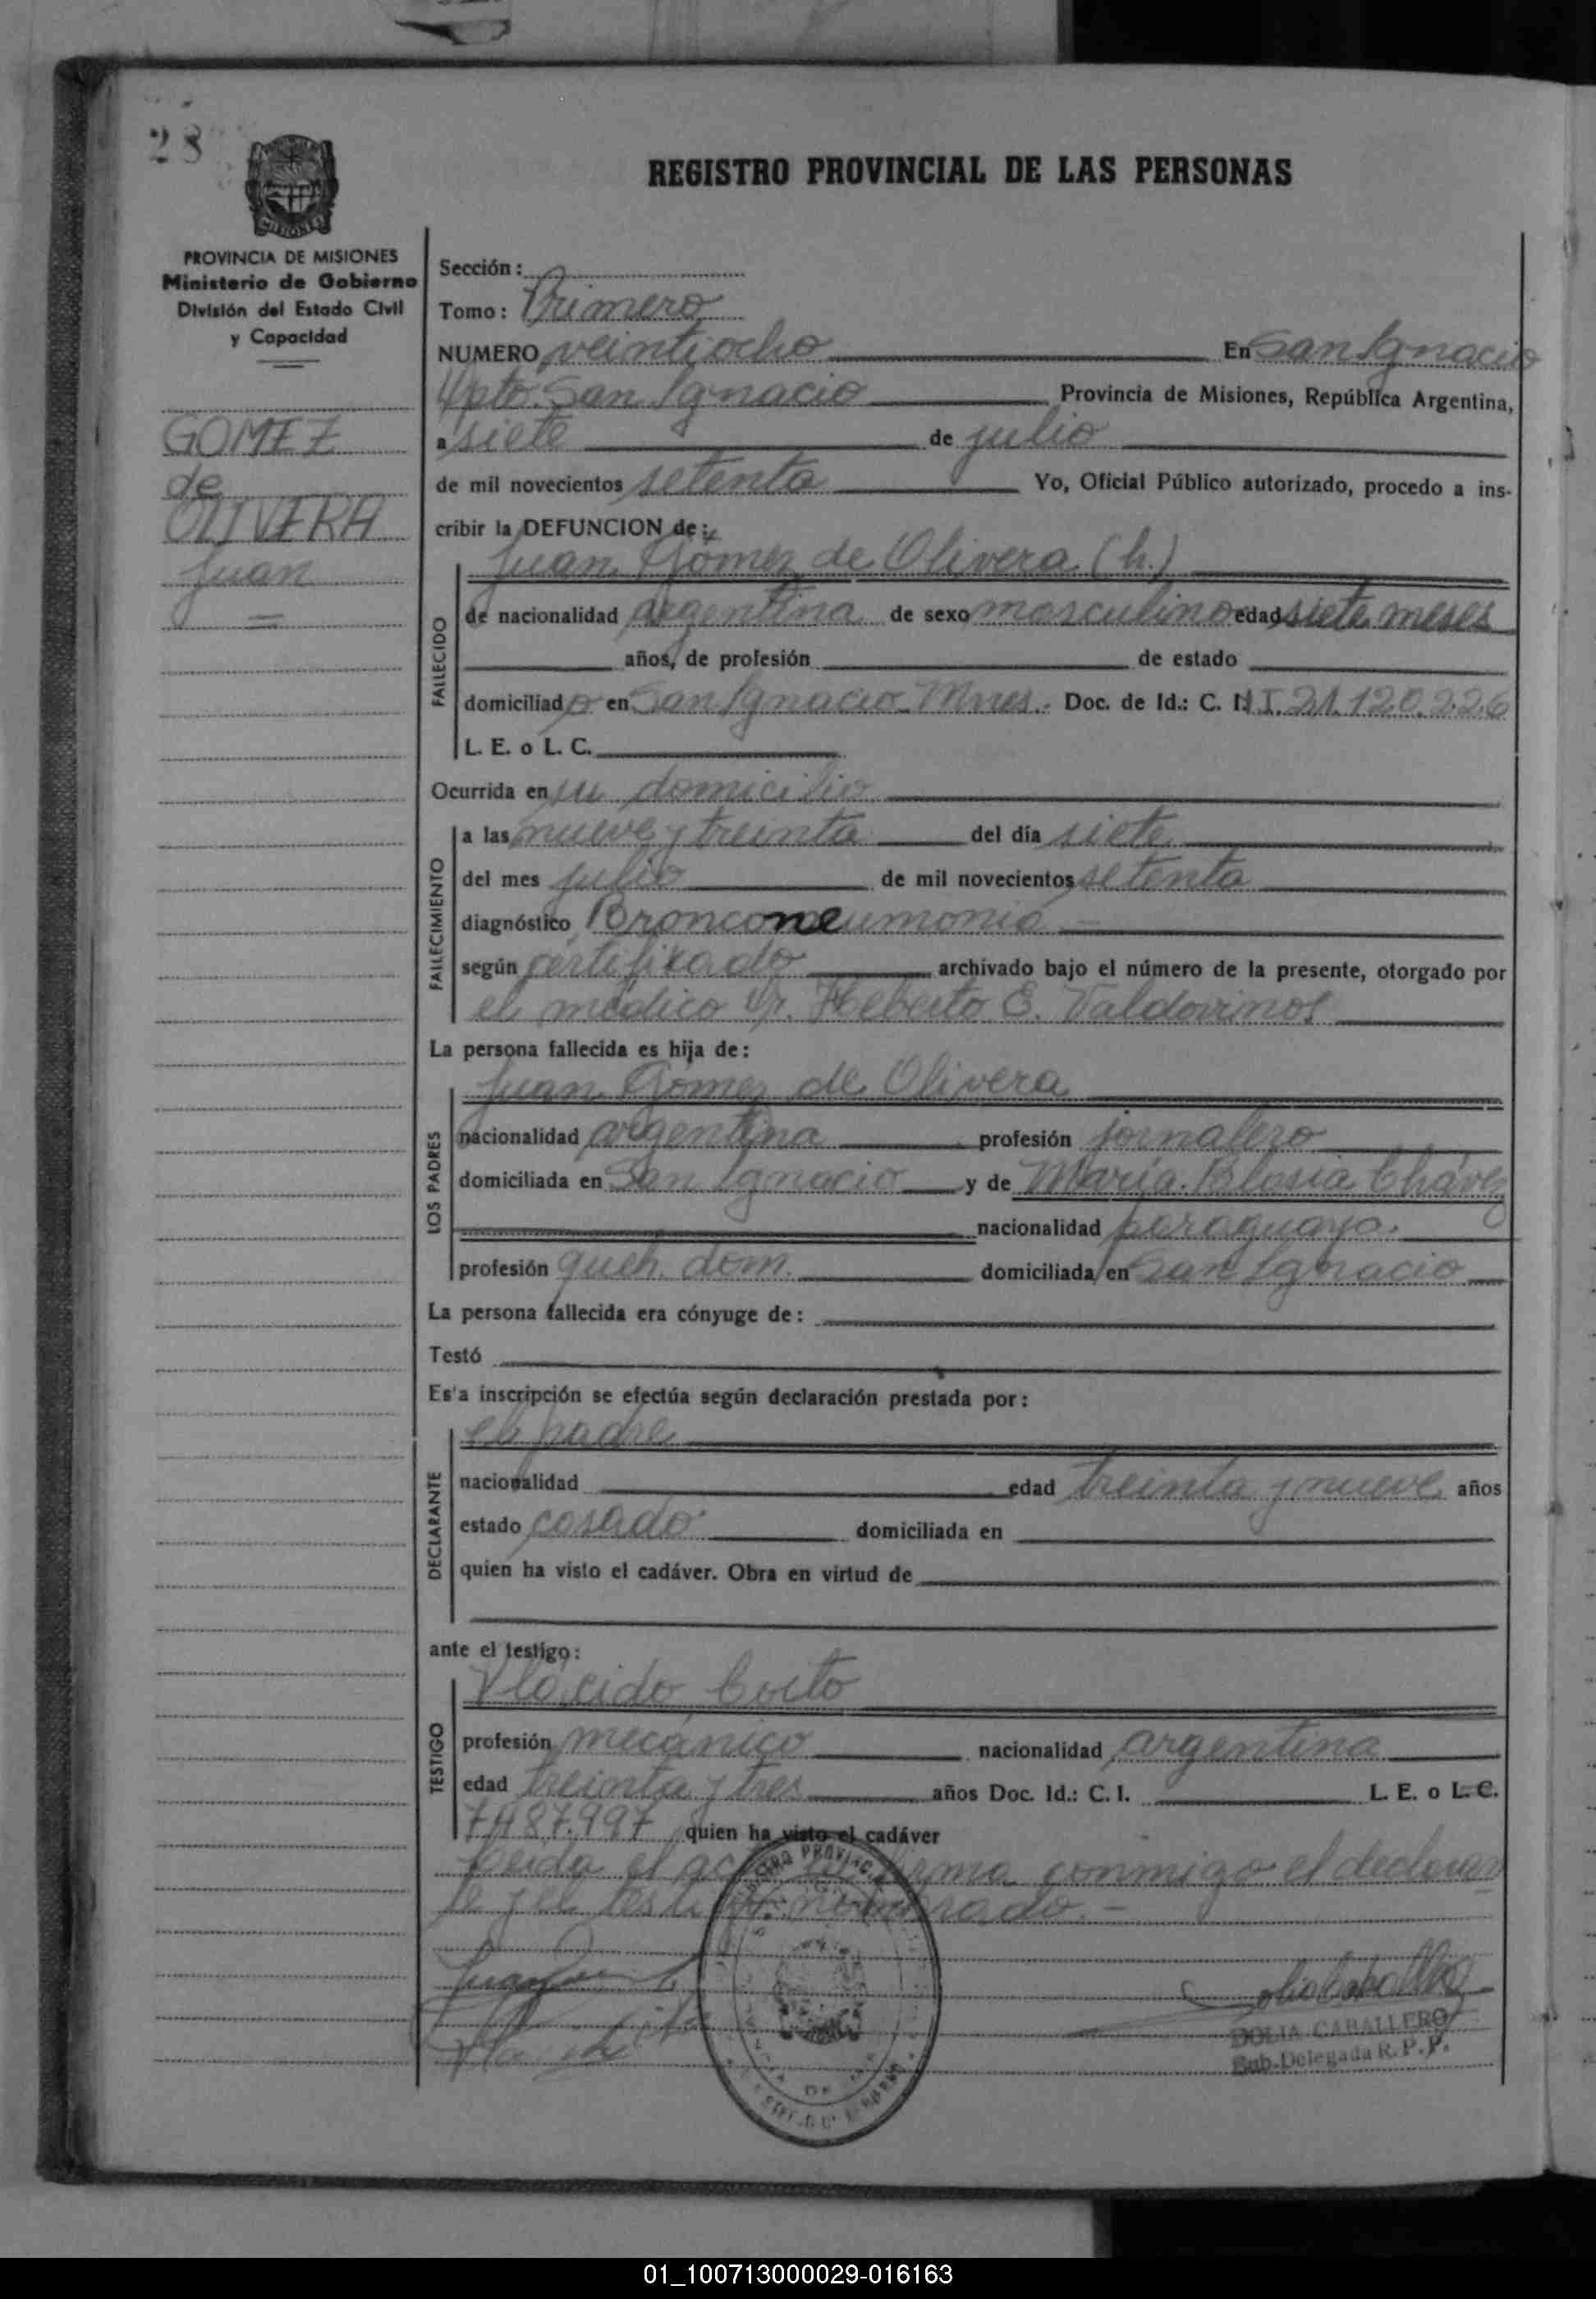 28
REGISTRO PROVINCIAL DE LAS PERSONAS
PROVINCIA DE MISIONES
Ministerio de Gobierno
División del Estado Civil
y Capacidad
GOMEZ
de
OLIVERA
Juan
Sección:
Tomo: Primero
NUMERO veintiocho En San Ignacio
Dpto. San Ignacio Provincia de Misiones, República Argentina,
a siete de julio
de mil novecientos setenta Yo, Oficial Público autorizado, procedo a ins-
cribir la DEFUNCION de:
Juan Gómez de Olivera (h.)
FALLECIDO
de nacionalidad argentina de sexo masculino edad siete meses
años, de profesión de estado
domiciliado en San Ignacio Mnes. Doc. de Id.: C. N.I. 21.120.226
L. E. o L. C.
Ocurrida en su domicilio
FALLECIMIENTO
a las nueve y treinta del día siete
del mes julio de mil novecientos setenta
diagnóstico Bronconeumonia
según certificado archivado bajo el número de la presente, otorgado por
el médico Dr. Heberto E. Valdovinos
La persona fallecida es hija de:
Juan Gómez de Olivera
LOS PADRES
nacionalidad argentina profesión jornalero
domiciliada en San Ignacio y de María Blasia Chávez
nacionalidad paraguaya.
profesión queh. dom. domiciliada en San Ignacio
La persona fallecida era cónyuge de:
Testó
Es'a inscripción se efectúa según declaración prestada por:
el padre
DECLARANTE
nacionalidad edad treinta y nueve años
estado casado domiciliada en
quien ha visto el cadáver. Obra en virtud de
ante el testigo:
Plácido Coito
TESTIGO
profesión mecánico nacionalidad argentina
edad treinta y tres años Doc. Id.: C. I. L. E. o L. C.
7.487.997 quien ha visto el cadáver
Leida el acta la firma conmigo el declaran
te y el testigo nombrado.-
Juan
DOLIA CABALLERO
Sub-Delegada R. P. P.
01_100713000029-016163